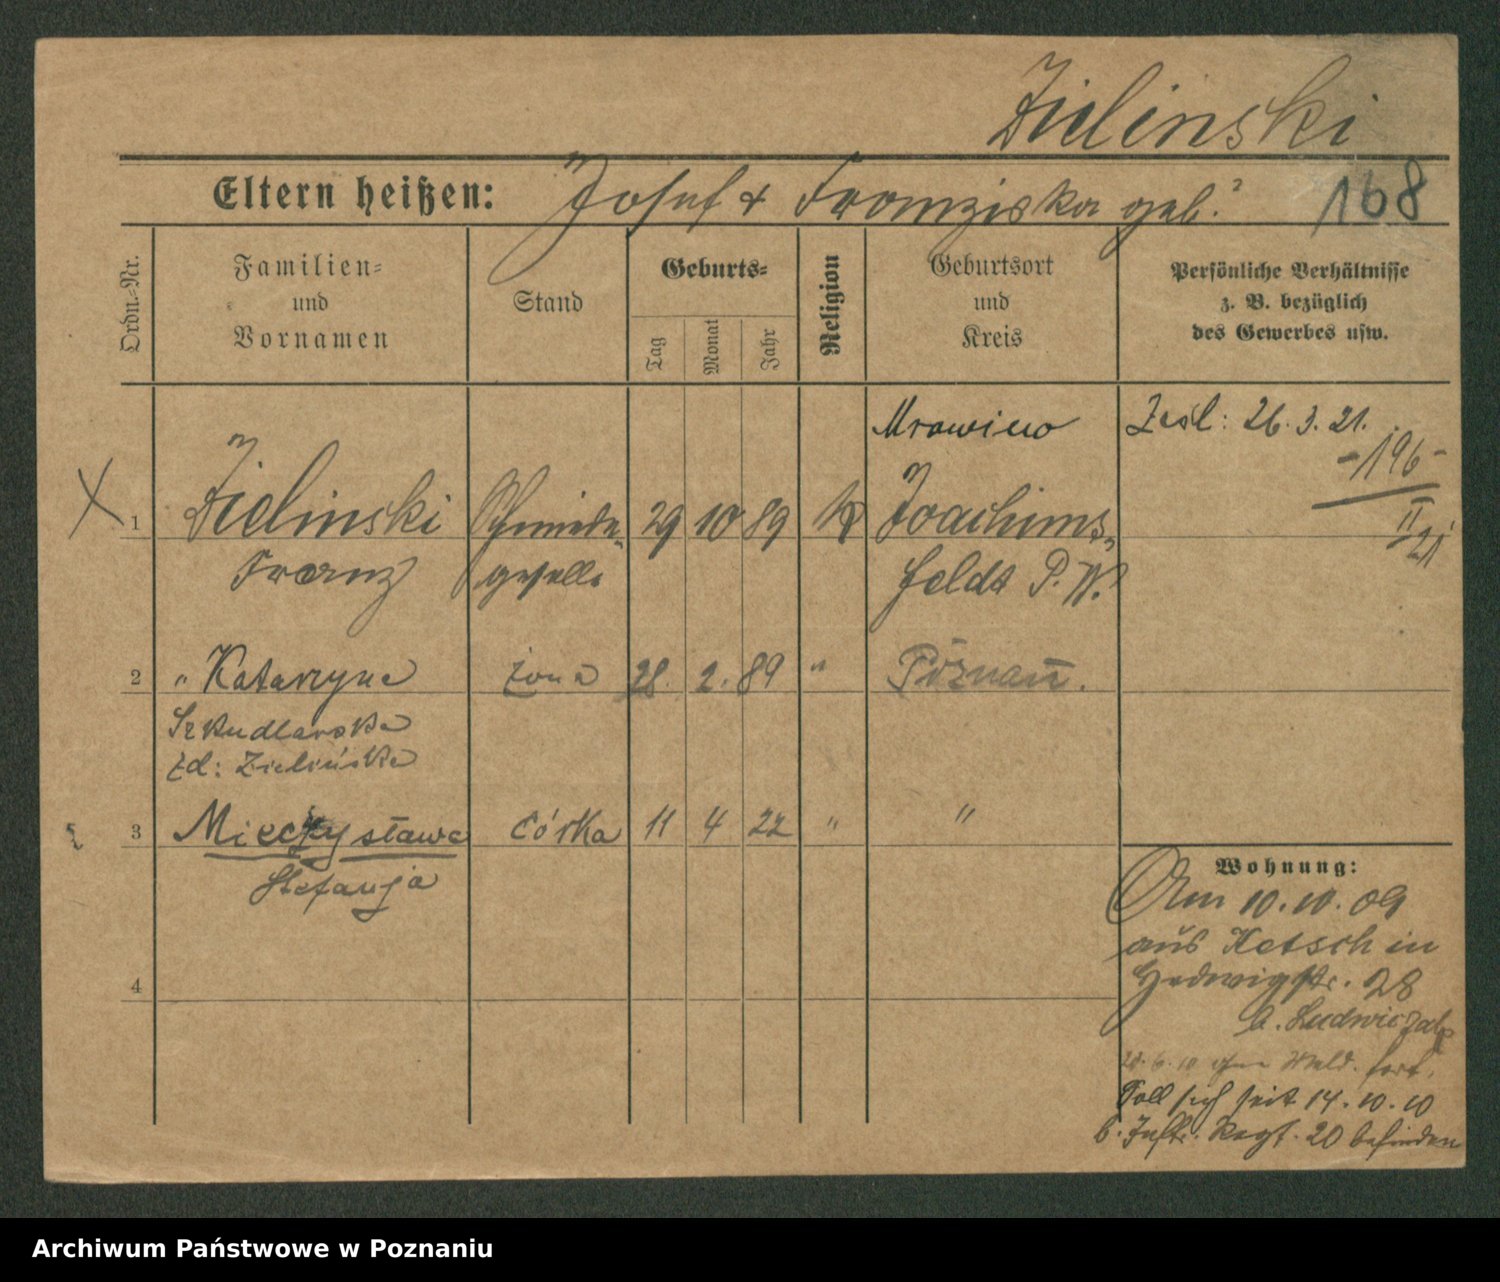 Zielinski
Eltern heißen: Josef & Franziska geb. ?
168
Ordn.-Nr.
Familien-
und
Vornamen
Stand
Geburts-
Tag
Monat
Jahr
Religion
Geburtsort
und
Kreis
Persönliche Verhältnisse
z. B. bezüglich
des Gewerbes usw.
Mrowino
Zesl: 26. 3. 21.
-196-
II
21
1 Zielinski Schmiede- 29 10 89 K Joachims-
Franz geselle feldt P. W.
2 " Katarzyna żona 28. 2. 89 " Poznań.
Szkudlarska
zd: Zielińska
3 Mieczysława córka 11 4 22 " "
Stefanja
4
Wohnung:
Am 10. 10. 09
aus Ketsch in
Hedwigstr. 28
b. Ludwiczak
28. 6. 10 ohne Meld. fort.
Soll sich seit 14. 10. 10
b. Inftr. Regt. 20 befinden
Archiwum Państwowe w Poznaniu